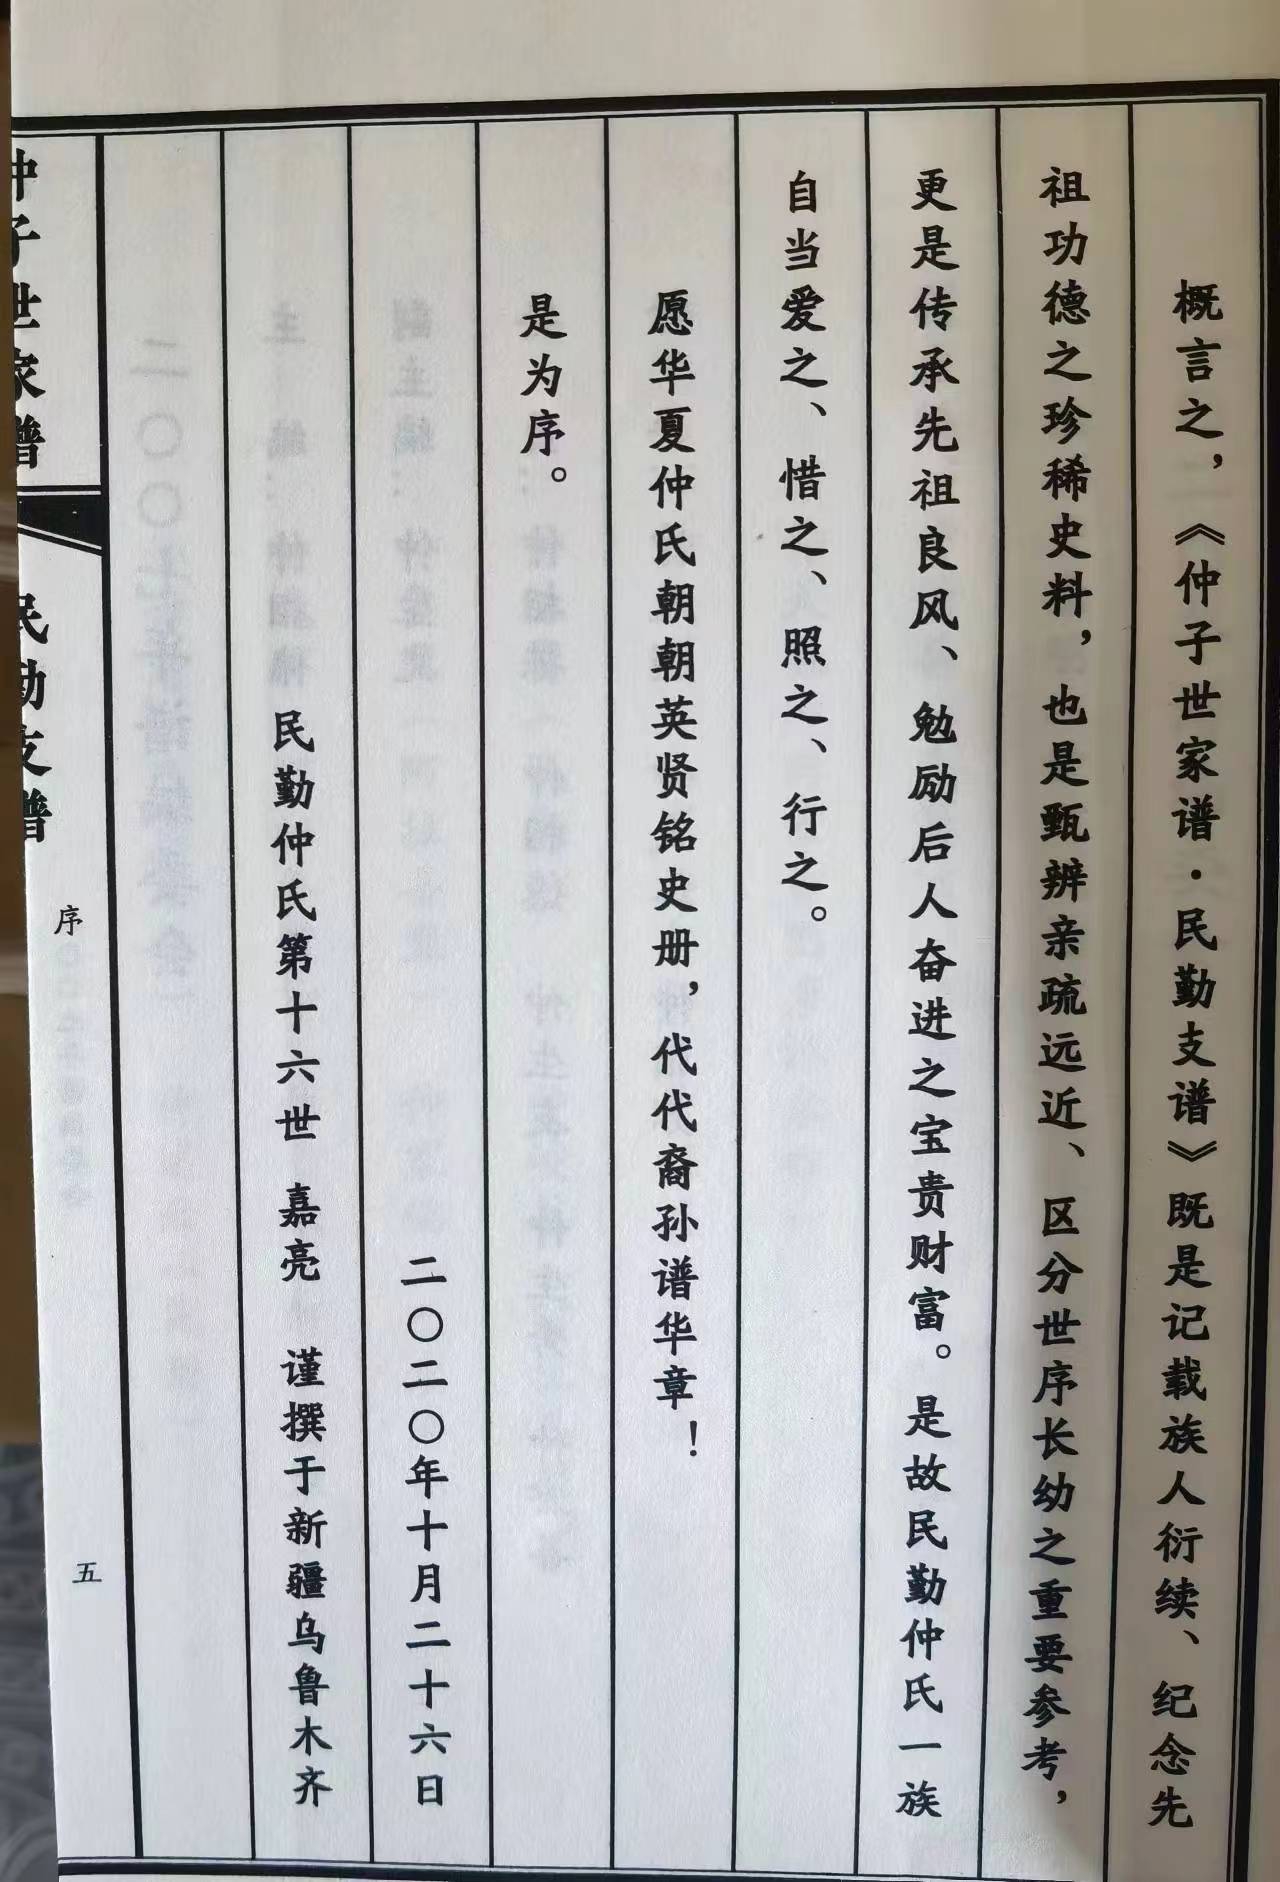 概言之，《仲子世家谱·民勤支谱》既是记载族人衍续、纪念先
祖功德之珍稀史料，也是甄辨亲疏远近、区分世序长幼之重要参考，
更是传承先祖良风、勉励后人奋进之宝贵财富。是故民勤仲氏一族
自当爱之、惜之、照之、行之。
愿华夏仲氏朝朝英贤铭史册，代代裔孙谱华章！
是为序。
二〇二〇年十月二十六日
民勤仲氏第十六世 嘉亮 谨撰于新疆乌鲁木齐
仲子世家谱
民勤支谱
序
五